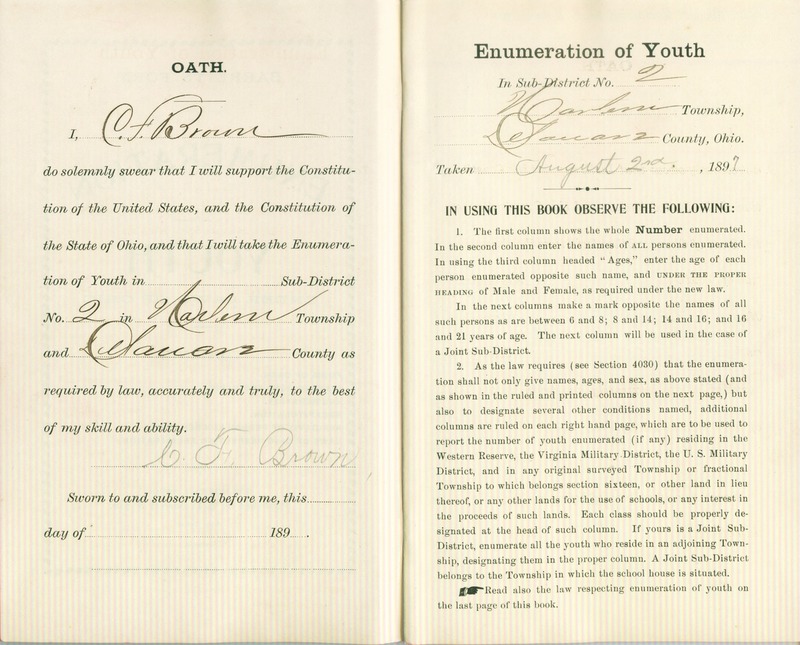 OATH.
I, C. F. Brown
do solemnly swear that I will support the Constitu-
tion of the United States, and the Constitution of
the State of Ohio, and that I will take the Enumera-
tion of Youth in Sub-District
No. 2 in Harlem Township
and Delaware County as
required by law, accurately and truly, to the best
of my skill and ability.
C. F. Brown
Sworn to and subscribed before me, this
day of 189 .
Enumeration of Youth
In Sub-District No. 2
Harlem Township,
Delaware County, Ohio.
Taken August 2nd. , 1897
IN USING THIS BOOK OBSERVE THE FOLLOWING:
1. The first column shows the whole Number enumerated.
In the second column enter the names of ALL persons enumerated.
In using the third column headed "Ages," enter the age of each
person enumerated opposite such name, and UNDER THE PROPER
HEADING of Male and Female, as required under the new law.
In the next columns make a mark opposite the names of all
such persons as are between 6 and 8; 8 and 14; 14 and 16; and 16
and 21 years of age. The next column will be used in the case of
a Joint Sub-District.
2. As the law requires (see Section 4030) that the enumera-
tion shall not only give names, ages, and sex, as above stated (and
as shown in the ruled and printed columns on the next page,) but
also to designate several other conditions named, additional
columns are ruled on each right hand page, which are to be used to
report the number of youth enumerated (if any) residing in the
Western Reserve, the Virginia Military District, the U. S. Military
District, and in any original surveyed Township or fractional
Township to which belongs section sixteen, or other land in lieu
thereof, or any other lands for the use of schools, or any interest in
the proceeds of such lands. Each class should be properly de-
signated at the head of such column. If yours is a Joint Sub-
District, enumerate all the youth who reside in an adjoining Town-
ship, designating them in the proper column. A Joint Sub-District
belongs to the Township in which the school house is situated.
Read also the law respecting enumeration of youth on
the last page of this book.